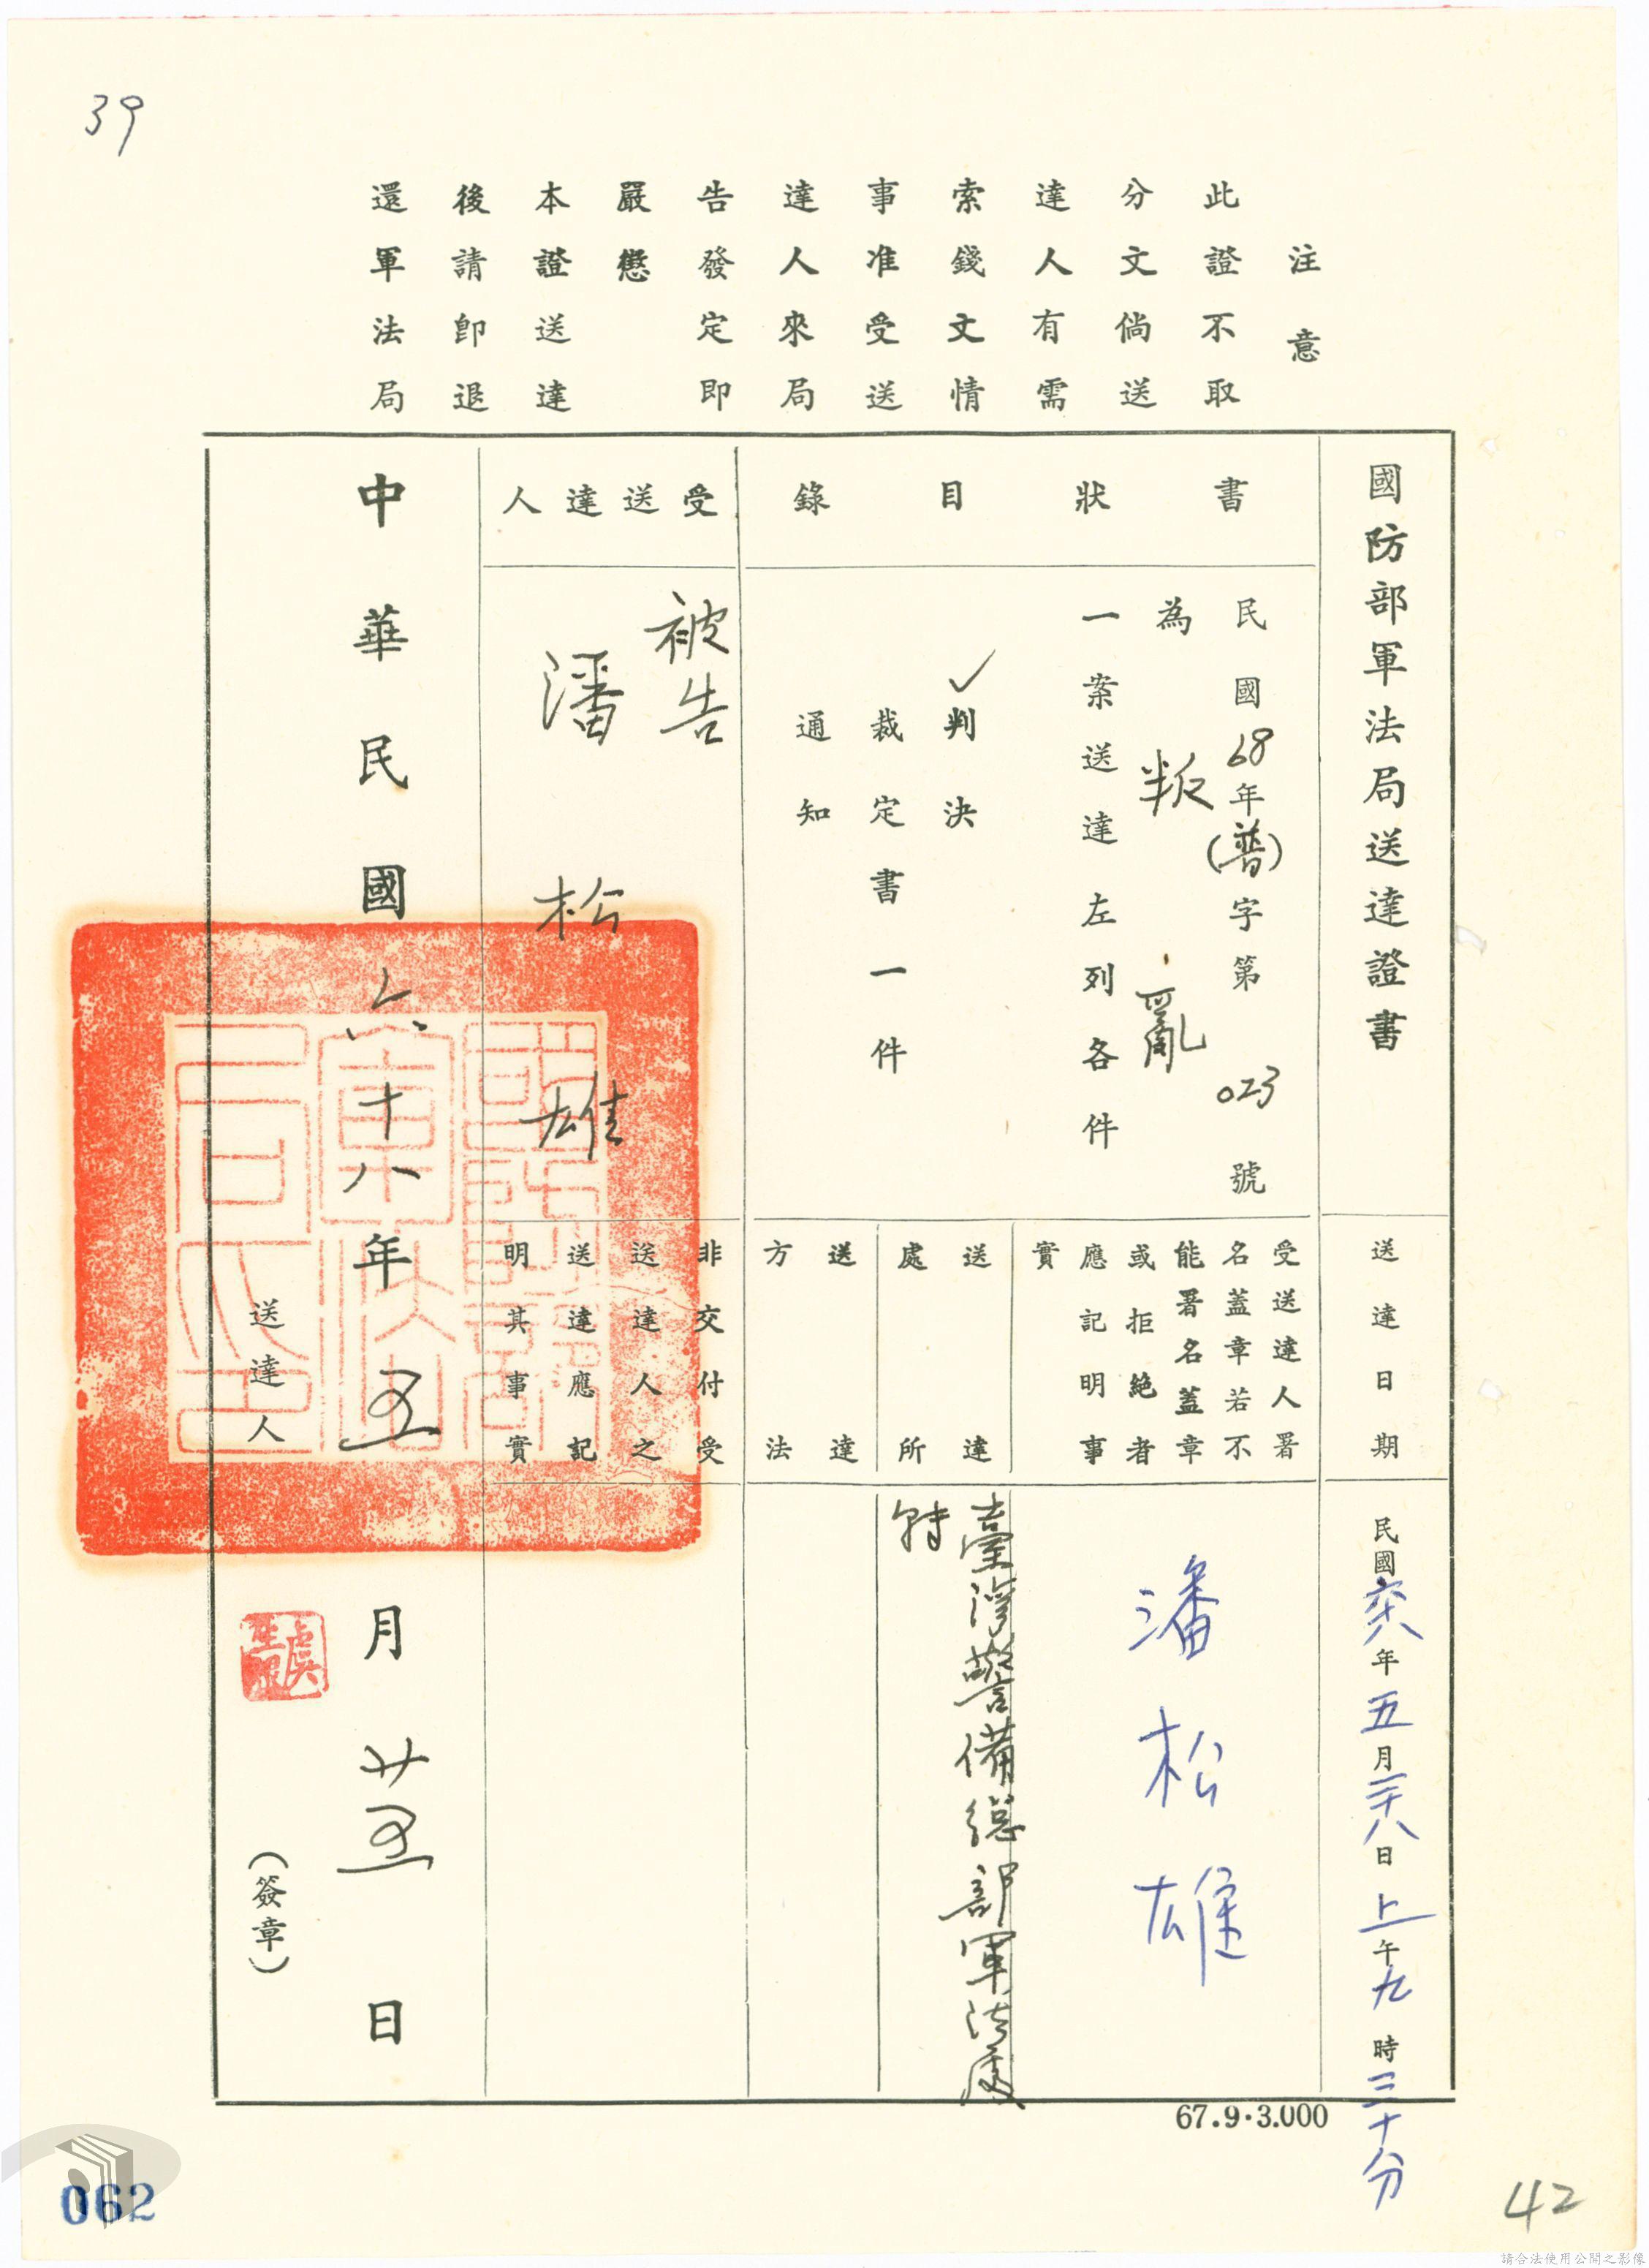 39
注意
此證不取
分文倘送
達人有需
索錢文情
事准受送
達人來局
告發定即
嚴懲
本證送達
後請即退
還軍法局
國防部軍法局送達證書
送達日期
民國六十八年五月二十八日上午九時三十分
書狀目錄
民國68年(普)字第023號
為叛亂
一案送達左列各件
✓判決
裁定書一件
通知
受送達人署
名蓋章若不
能署名蓋章
或拒絕者
應記明事
實
潘松雄
送達
處所
臺灣警備總部軍法處
送達
方法
受送達人
被告
潘松雄
非交付受
送達人之
送達應記
明其事實
中華民國六十八年五月廿五日
送達人
(簽章)
67.9.3.000
062
42
請合法使用公開之影像